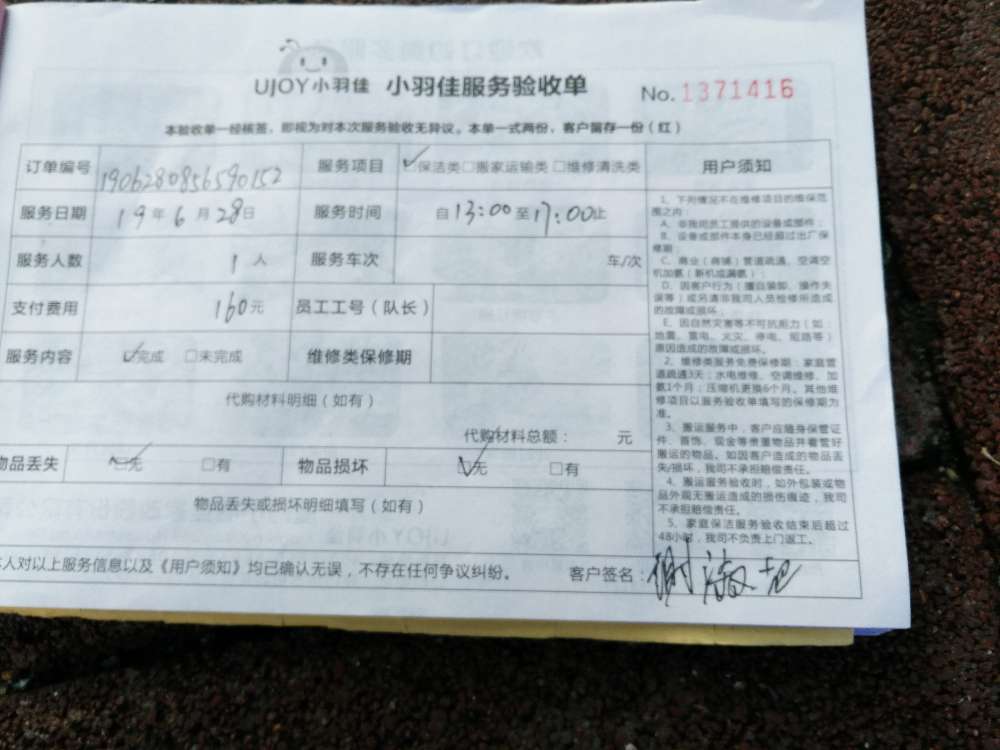 UJOY小羽佳 小羽佳服务验收单 No. 1371416
本验收单一经核签，即视为对本次服务验收无异议。本单一式两份，客户留存一份（红）
订单编号 1906280856590152 服务项目 ☑保洁类□搬家运输类□维修清洗类
服务日期 19年6月28日 服务时间 自13:00至17:00止
服务人数 1人 服务车次 车/次
支付费用 160元 员工工号（队长）
服务内容 ☑完成 □未完成 维修类保修期
代购材料明细（如有）
代购材料总额： 元
物品丢失 ☑无 □有 物品损坏 ☑无 □有
物品丢失或损坏明细填写（如有）
本人对以上服务信息以及《用户须知》均已确认无误，不存在任何争议纠纷。 客户签名：谢
用户须知
1、下列情况不在维修项目的维保范
围之内：
A、非我司员工提供的设备或部件；
B、设备或部件本身已经超过出厂保
修期；
C、商业（商铺）管道疏通、空调空
机加氨（新机或漏氨）；
D、因客户行为（擅自装卸、操作失
误等）或另请非我司人员检修所造成
的故障或损坏；
E、因自然灾害等不可抗拒力（如：
地震、雷电、火灾、停电、短路等）
原因造成的故障或损坏。
2、维修类服务免费保修期：家庭管
道疏通3天；水电维修、空调维修、加
氨1个月；压缩机更换6个月。其他维
修项目以服务验收单填写的保修期为
准。
3、搬运服务中，客户应随身保管证
件、首饰、现金等贵重物品并看管好
搬运的物品。如因客户造成的物品丢
失/损坏，我司不承担赔偿责任。
4、搬运服务验收时，如外包装或物
品外观无搬运造成的损伤痕迹，我司
不承担赔偿责任。
5、家庭保洁服务验收结束后超过
48小时，我司不负责上门返工。